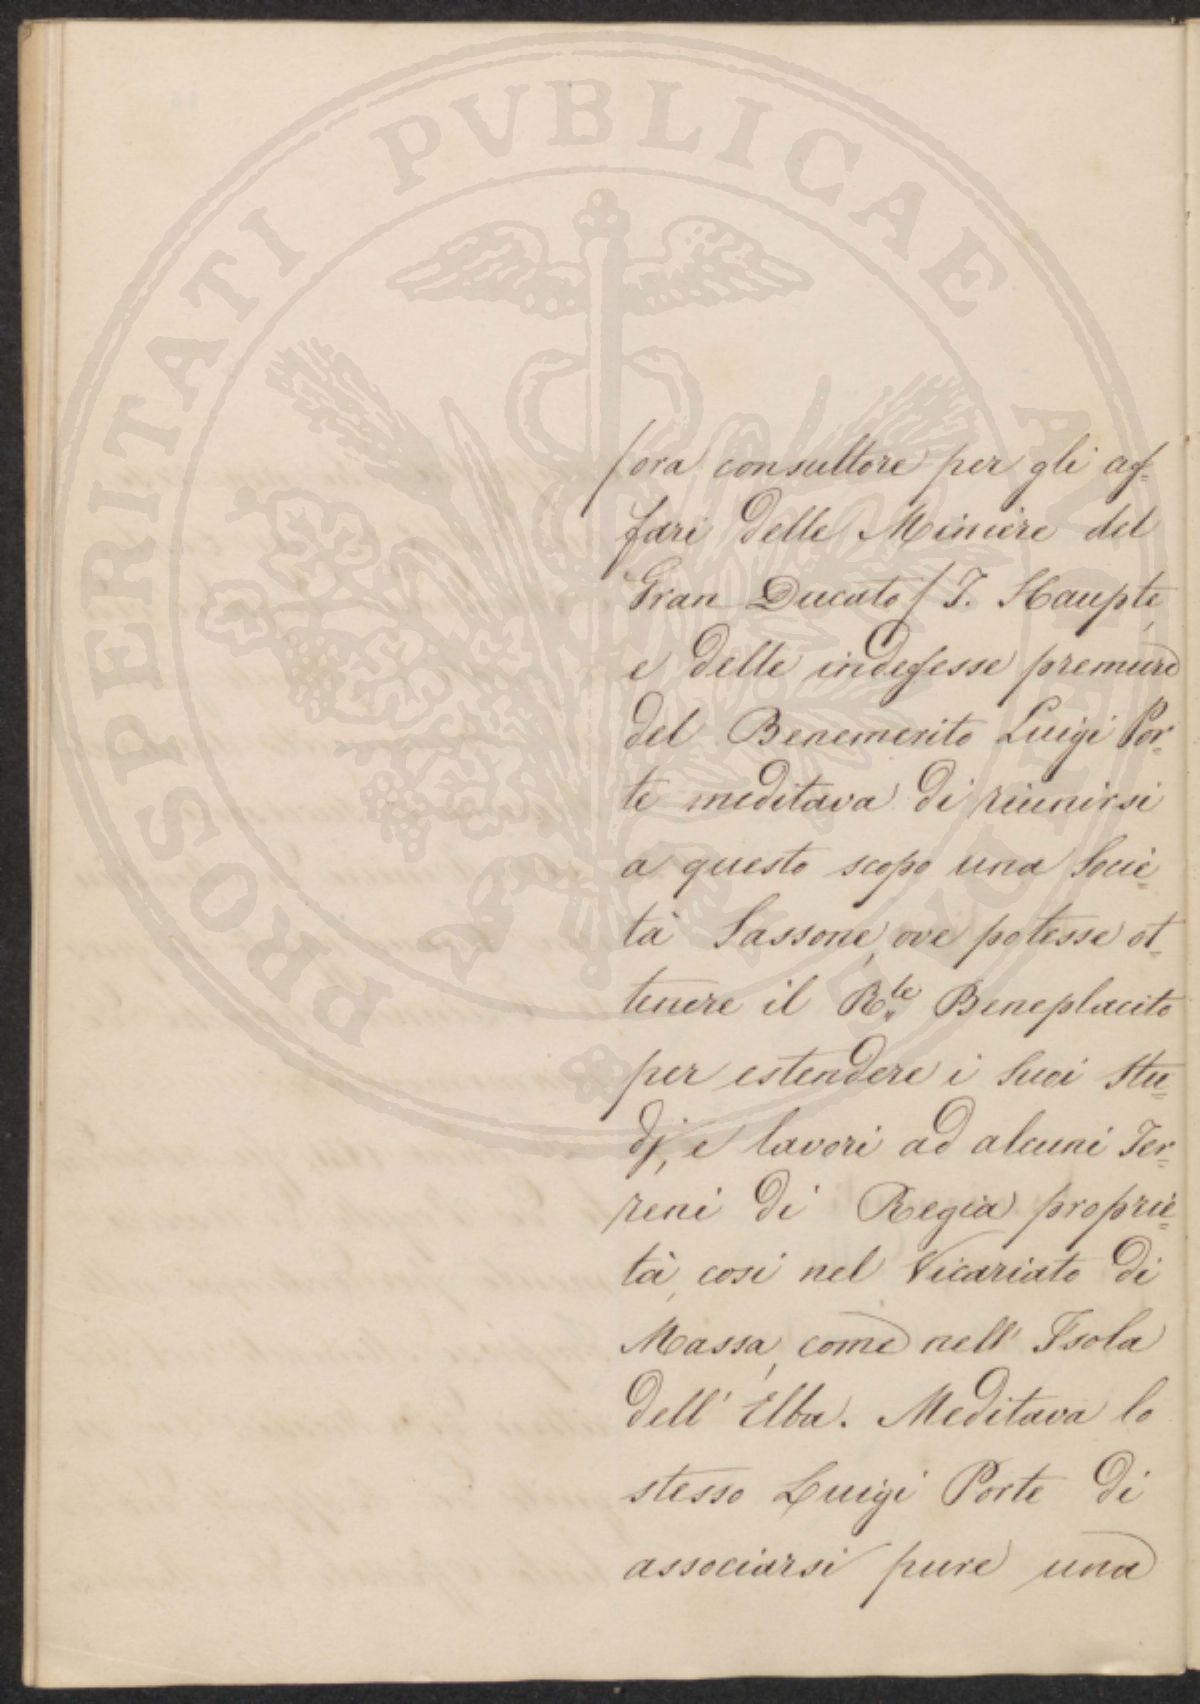 PROSPERITATI PVBLICAE AVGENDAE
/ora consultore per gli af-
fari delle Miniere del
Gran Ducato/ I. Haupte,
e delle indefesse premure
del Benemerito Luigi Por=
te meditava di riunirsi
a questo scopo una Socie=
tà Sassone, ove potesse ot=
tenere il R.le Beneplacito
per estendere i suoi Stu=
dj, e lavori ad alcuni Ter=
reni di Regia proprie=
tà, così nel Vicariato di
Massa, come nell' Isola
dell' Elba. Meditava lo
stesso Luigi Porte di
associarsi pure una